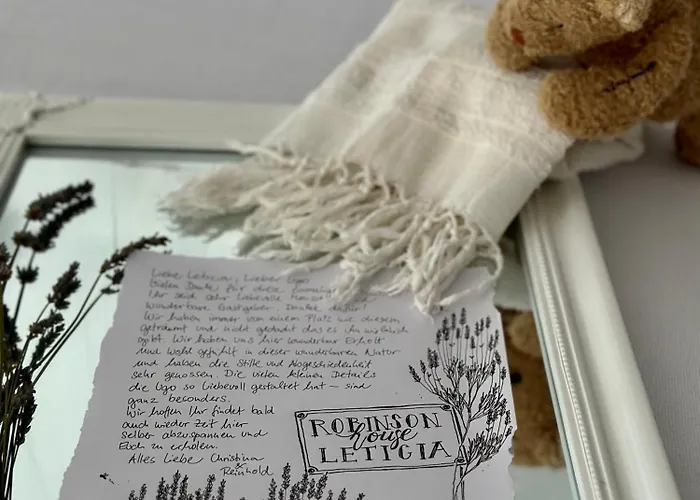 Liebe Leticia, Lieber Ugo
Vielen Dank für diese
Ihr seid sehr liebevolle
wunderbare Gastgeber. Danke dafür!
Wir haben immer von einem Platz wie diesem
geträumt und nicht gedacht das es ihn wirklich
gibt. Wir haben uns hier wunderbar Erholt
und Wohl gefühlt in dieser wunderbaren Natur
und haben die Stille und Abgeschiedenheit
sehr genossen. Die vielen kleinen Details
die Ugo so liebevoll gestaltet hat – sind
ganz besonders.
Wir hoffen Ihr findet bald
auch wieder Zeit hier
selber abzuspannen und
Euch zu erholen.
Alles Liebe Christina
& Reinhold
ROBINSON
house
LETICIA